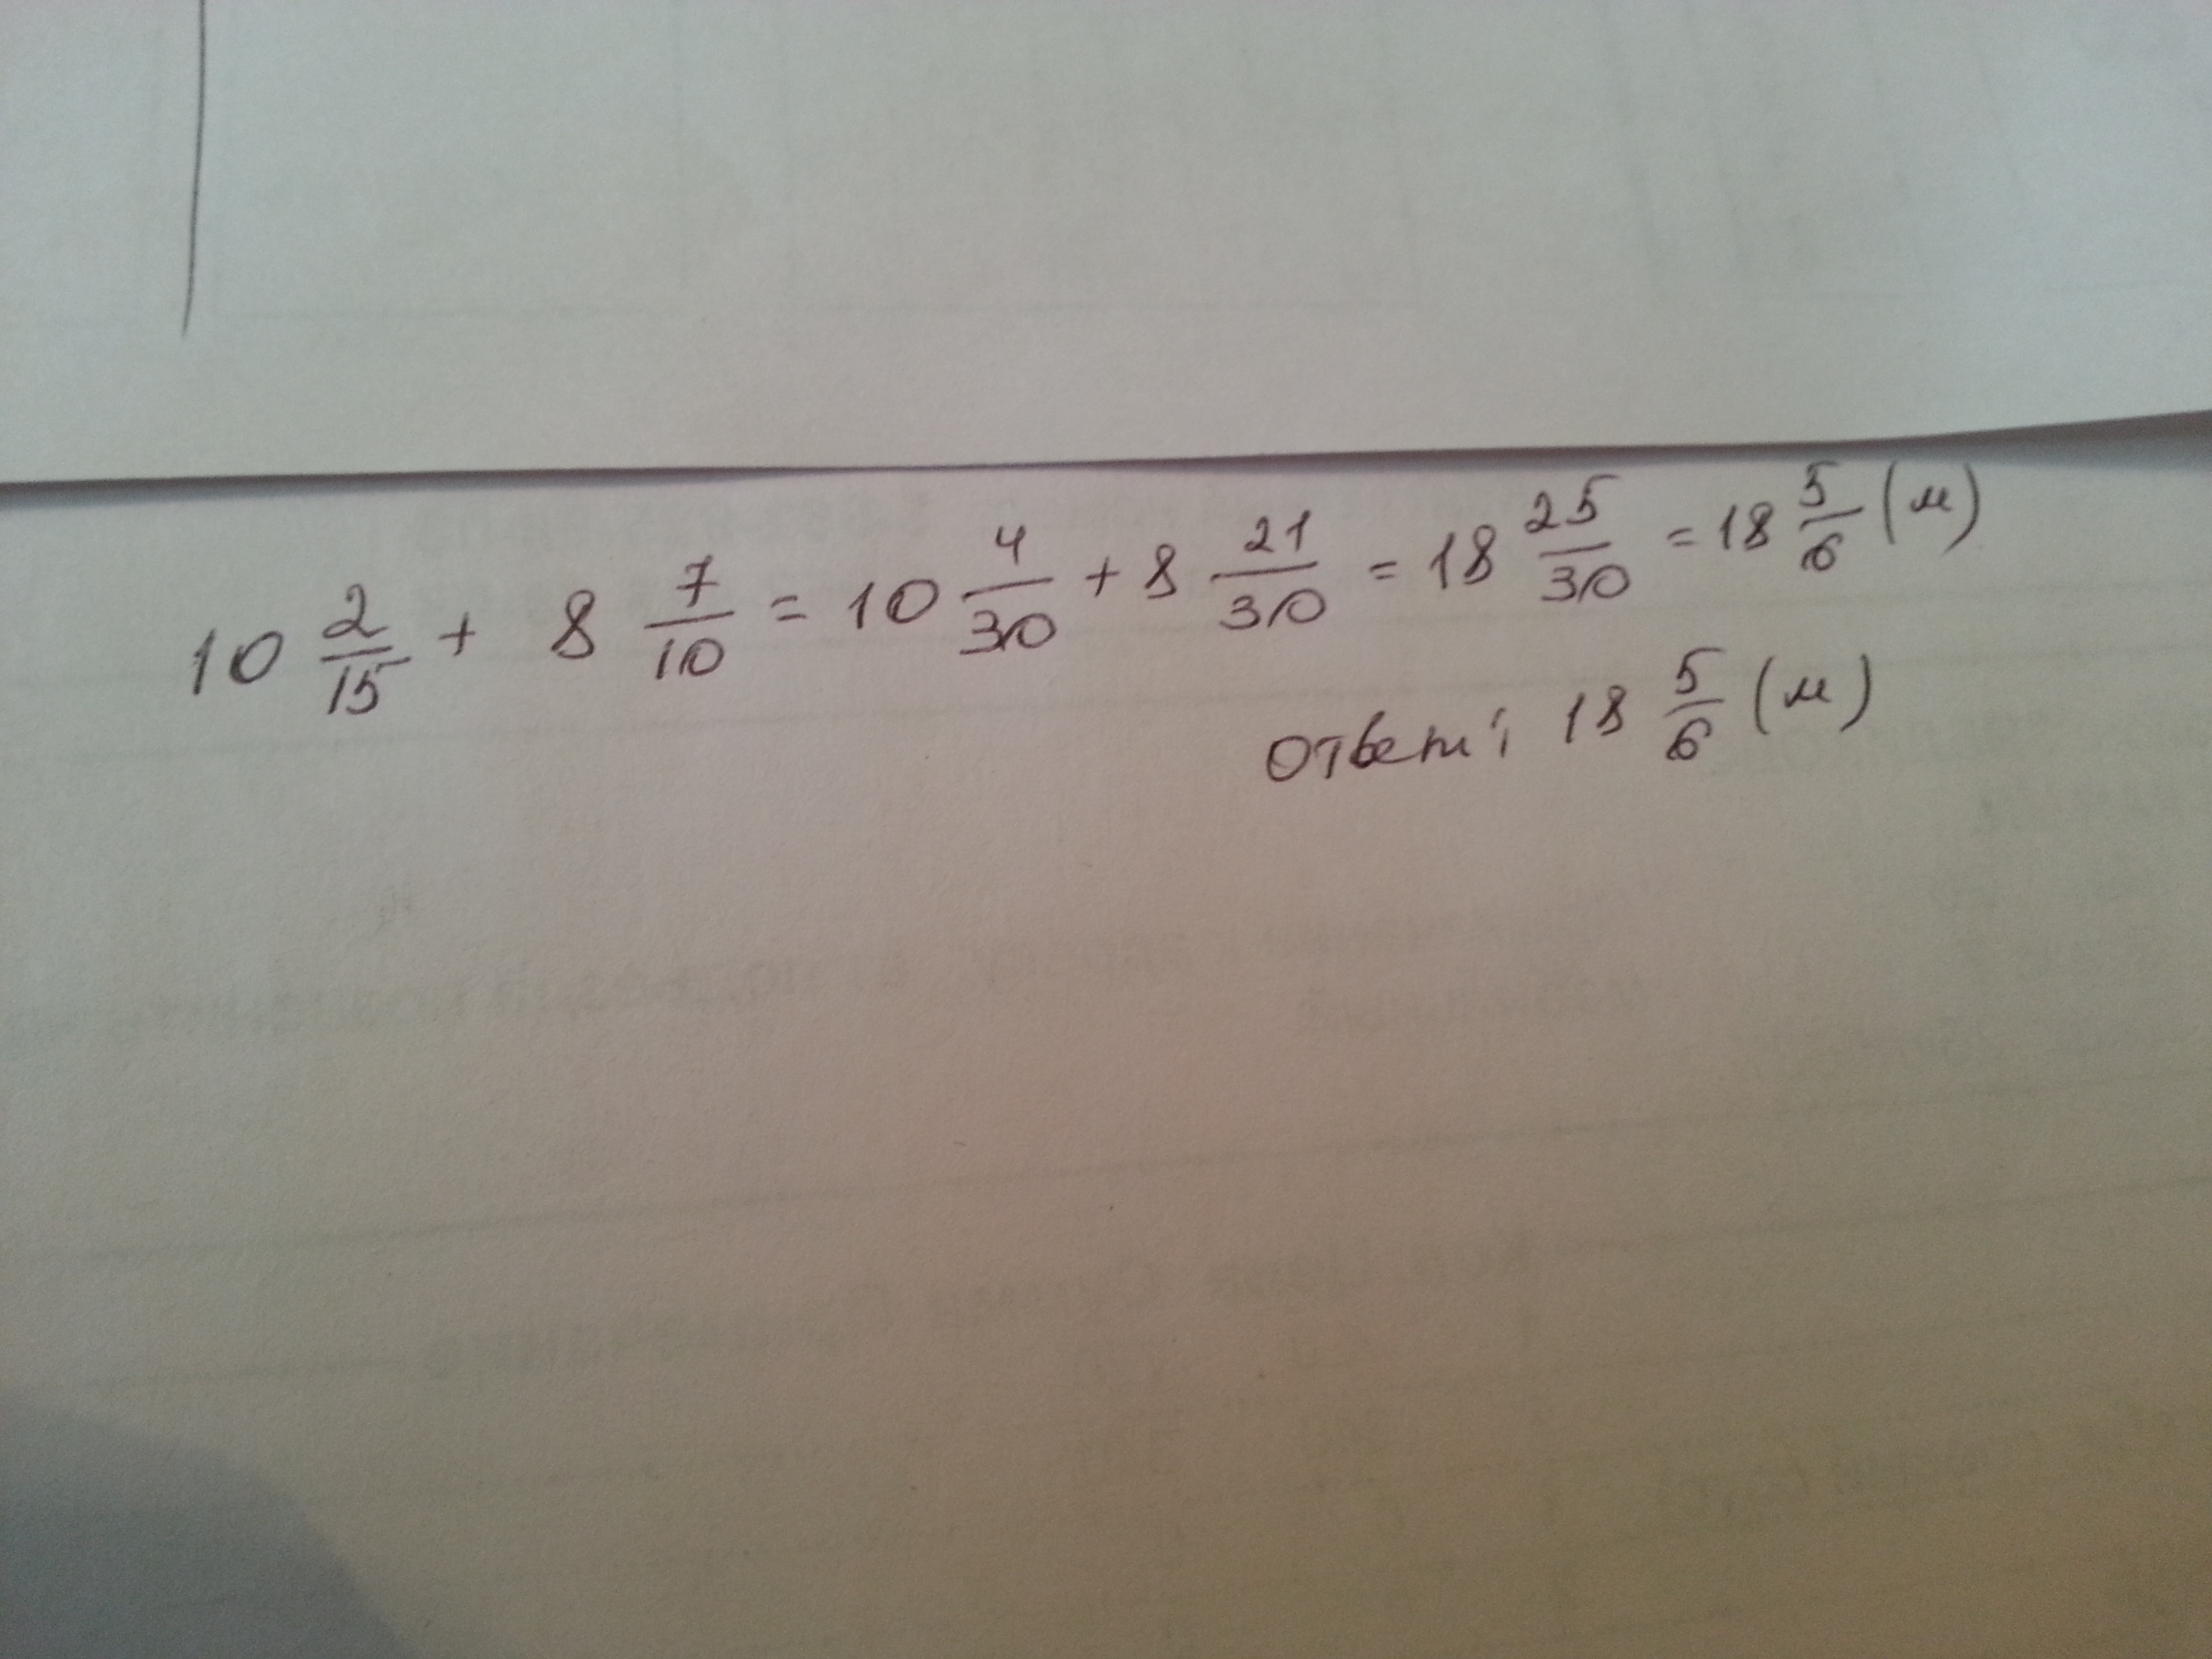 10 2/15 + 8 7/10 = 10 4/30 + 8 21/30 = 18 25/30 = 18 5/6 (м)
Ответ: 18 5/6 (м)